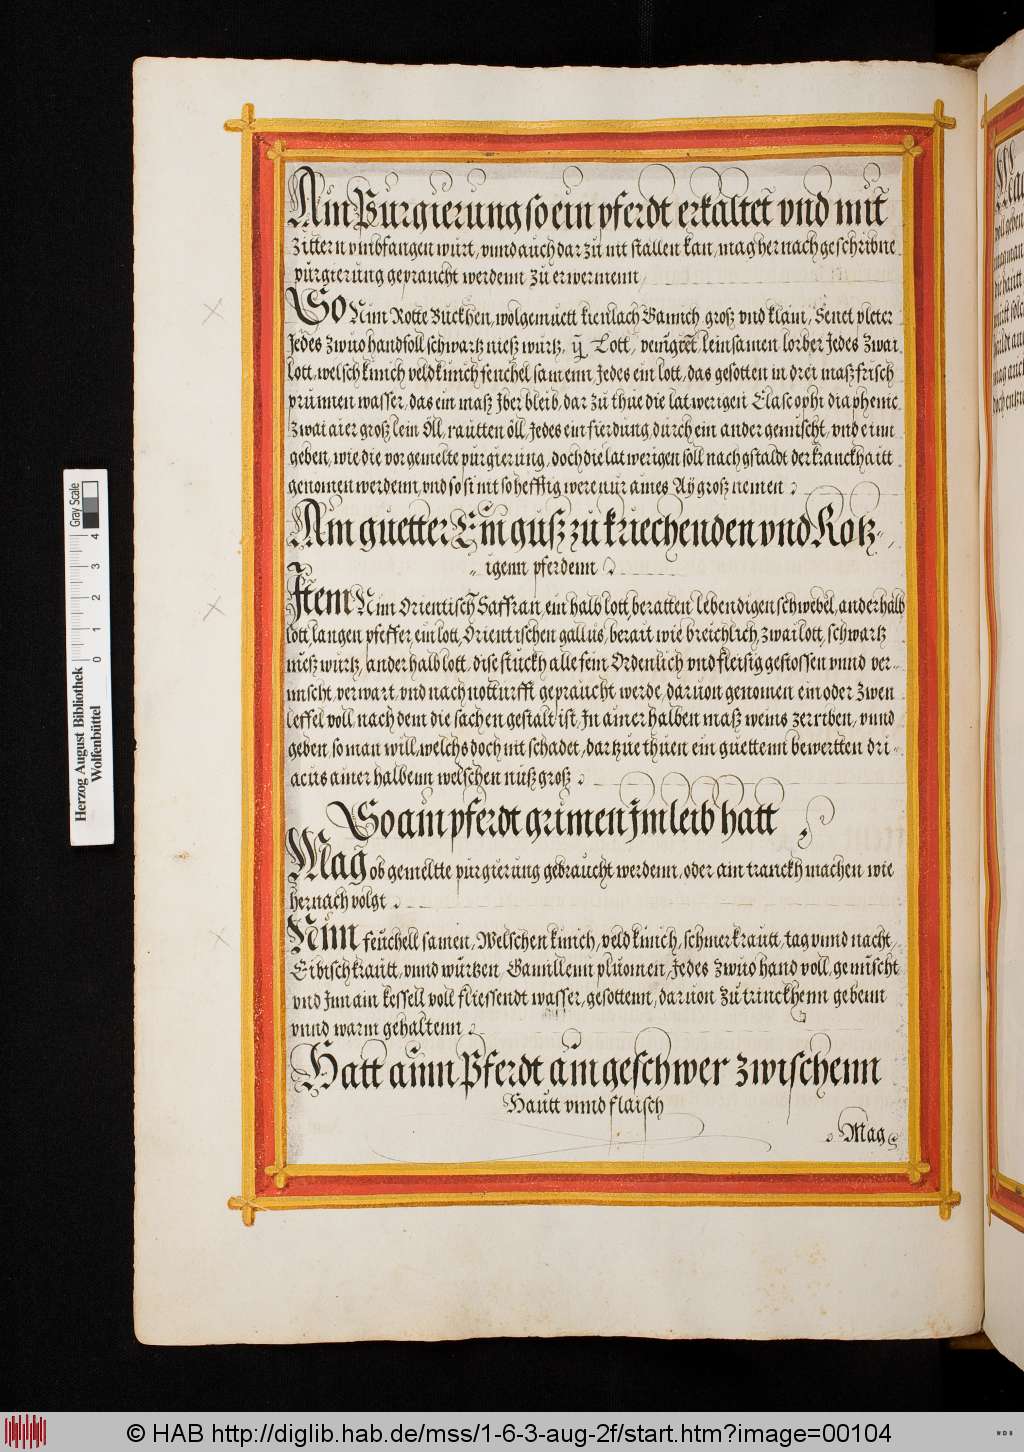 Ain Purgierung so ein pferdt erkaltet vnd mit
Zittern vmbfangen wurt, vnnd auch dar zu nit stallen kan, mag hernach geschribne
purgierung gepraucht werdenn zu erwermenn
So Nim Rotte Buckhen, wolgemuett kienlach Bannich groß vnd klain, Senet pleter
Jedes zwuo handfoll schwartz nieß wurtz, ij Lott, venigret, leinsamen lorber Jedes zwai
lott, welsch kinich veldkunich fenchel samenn Jedes ein lott, das gesotten in drei maß frisch
prunnen wasser, das ein maß Jber bleib, dar zu thue die latwerigen Elascophi diaphenic
zwai aier groß lein öll, rautten öll, Jedes ein fierdung, durch ein ander gemischt, vnd einn
geben, wie die vorgemelte purgierung, doch die latwerigen soll nach gstaldt der kranckhaitt
genomen werdenn, vnd so si nit so hefftig were nur aines Aÿ groß nemen
Ain guetter Ein guß zu kriechenden vnd Rotz-
igenn pferdenn
Jtem Nim Orientisch Saffran, ein halb lott, beratten lebendigen schwebel, anderhalb
lott langen pfeffer, ein lott, Orientischen gallus, berait wie breichlich, zwai lott, schwartz
nieß wurtz, anderhalb lott, dise stuckh alle fein Ordenlich vnd fleisig gestossen vnnd ver-
mischt, verwart vnd nach notturfft gepraucht werde, daruon genomen ein oder zwen
leffel voll, nach dem die sachen gestalt ist, Jn ainer halben maß weins zerriben, vnnd
geben, so man will, welchs doch nit schadet, dartzue thuen ein guettenn bewertten dri-
acus ainer halbenn welschen nuß groß
So ain pferdt grimen Jm leib hatt
Mag ob gemeltte purgierung gebraucht werdenn, oder ain tranckh machen wie
hernach volgt
Nim feuchell samen, Welschen kinich, veld kinich, schmerkrautt, tag vnnd nacht,
Eibischkrautt, vnnd wurtzen Gamillenn pluomen, Jedes zwuo hand voll, gemischt
vnd Jnn ain kessell voll fliessendt wasser, gesottenn, daruon zu trinckhenn gebenn
vnnd warm gehaltenn
Hatt ainn Pferdt ain geschwer zwischenn
Hautt vnnd flaisch
Mag
Herzog August Bibliothek
Wolfenbüttel
0 1 2 3 4
Gray Scale
© HAB http://diglib.hab.de/mss/1-6-3-aug-2f/start.htm?image=00104